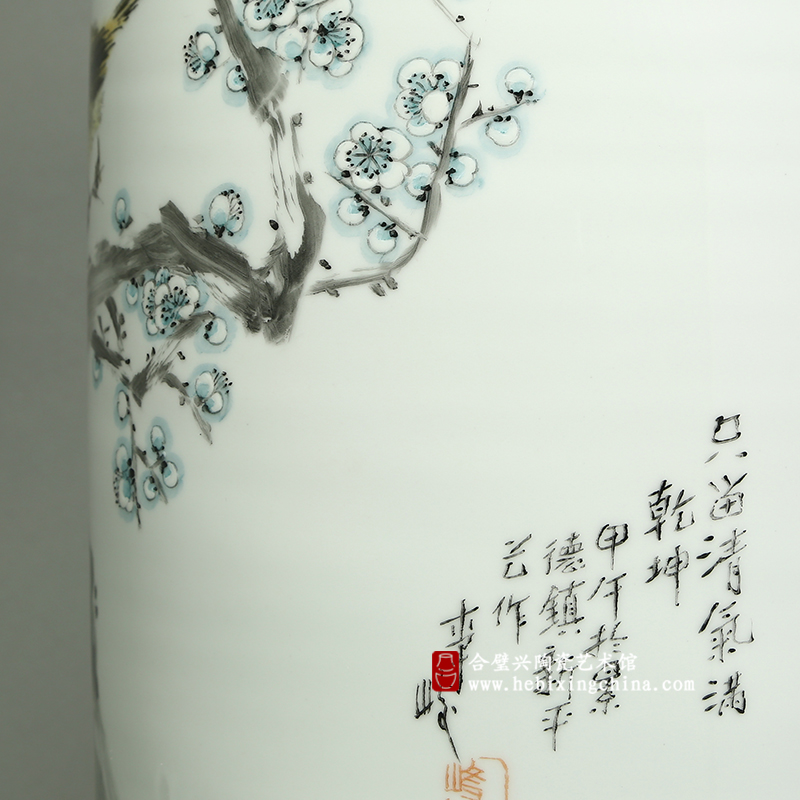 只留清氣滿
乾坤
甲午於景
德鎮新平
艺作
峰
合璧兴陶瓷艺术馆
www.hebixingchina.com
峰